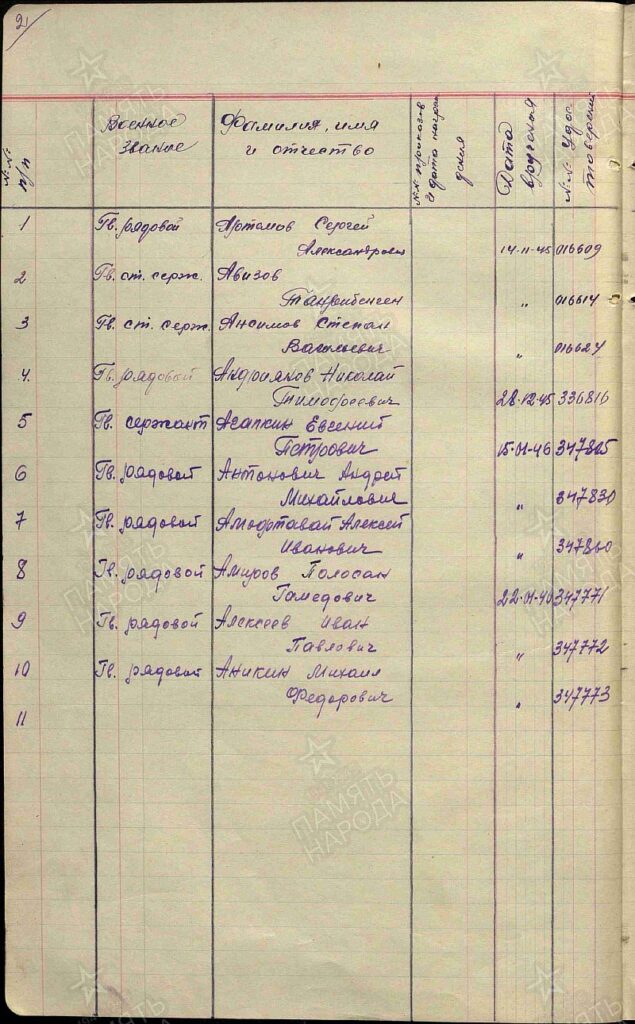 2
№№ п/п
Военное звание
Фамилия, имя и отчество
№№ приказов и дата награждения
Дата вручения
№№ удостоверений
1 Гв. рядовой Артомов Сергей
Александрович 14-11-45 016609
2 Гв. ст. серж. Авизов
" 016614
3 Гв. ст. серж. Аноимов Степан
Васильевич " 016624
4. Гв. рядовой Андрияков Николай
Тимофеевич 28-12-45 336816
5 Гв. сержант Асапкин Евгений
Петрович 15-01-46 347805
6 Гв. рядовой Антонович Андрей
Михайлович " 347830
7 Гв. рядовой Алексей
Иванович " 347860
8 Гв. рядовой Амиров Полосан
Гамедович 22-01-46 347771
9 Гв. рядовой Алексеев Иван
Павлович " 347772
10 Гв. рядовой Аникин Михаил
Федорович " 347773
11
ПАМЯТЬ НАРОДА